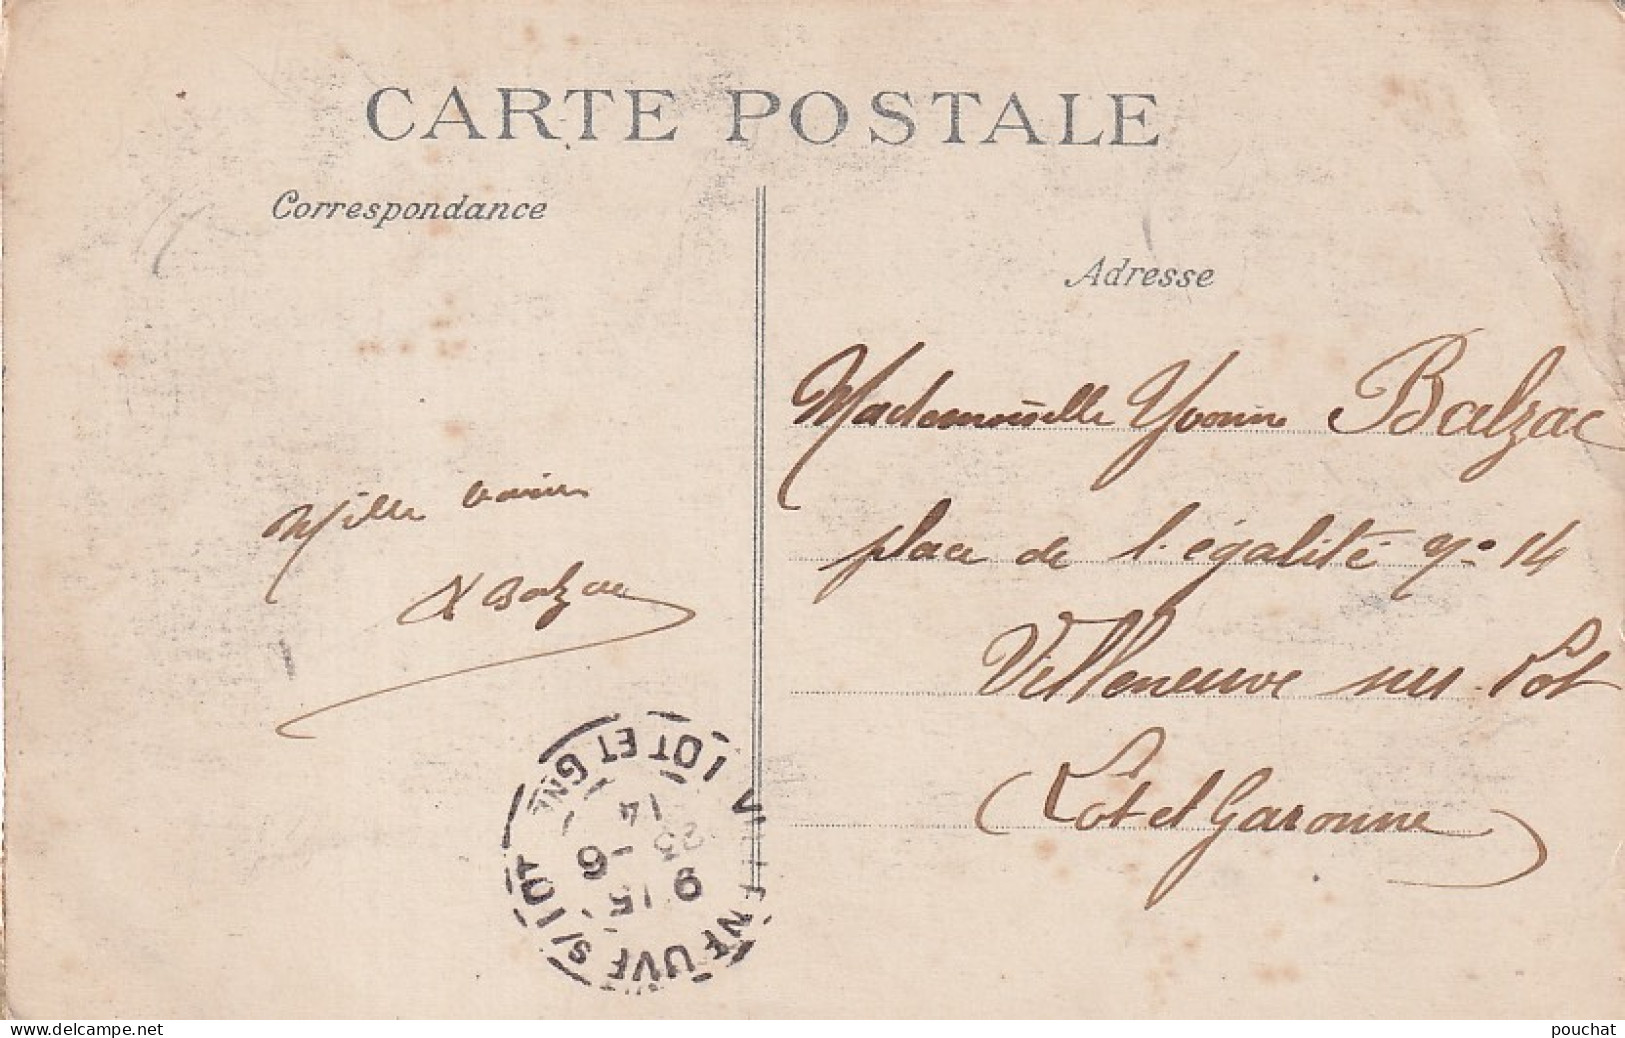 CARTE POSTALE
Correspondance
Adresse
Mille baisers
Balzac
Mademoiselle Yvonne Balzac
place de l'égalité No 14
Villeneuve sur Lot
(Lot et Garonne)
VILLENEUVE S/ LOT
LOT ET GNE
9 15
23 - 6
14
www.delcampe.net
pouchat